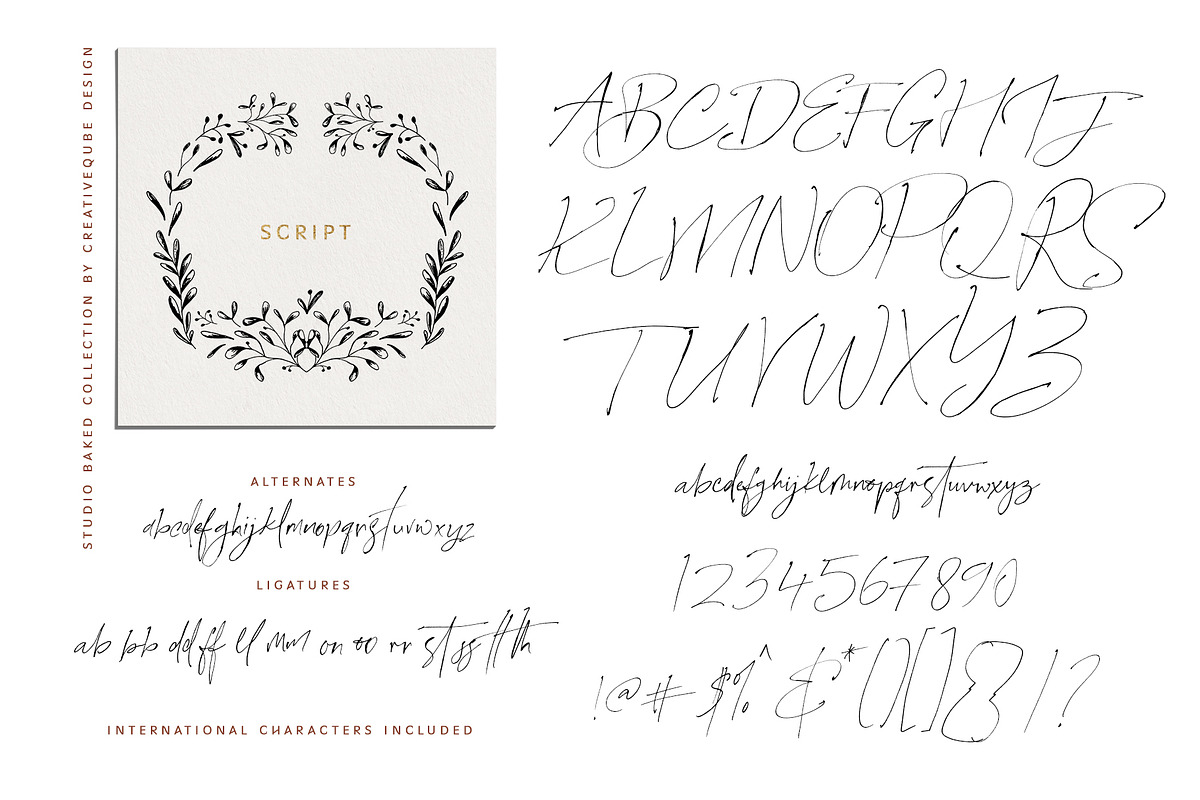 STUDIO BAKED COLLECTION BY CREATIVEQUBE DESIGN
SCRIPT
ALTERNATES
abcdefghijklmnopqrstuvwxyz
LIGATURES
ab bb dd ff ll mm on oo rr st ss tt th
INTERNATIONAL CHARACTERS INCLUDED
ABCDEFGHIJ
KLMNOPQRS
TUVWXYZ
abcdefghijklmnopqrstuvwxyz
1234567890
!@#$%^&*()[]{}/?